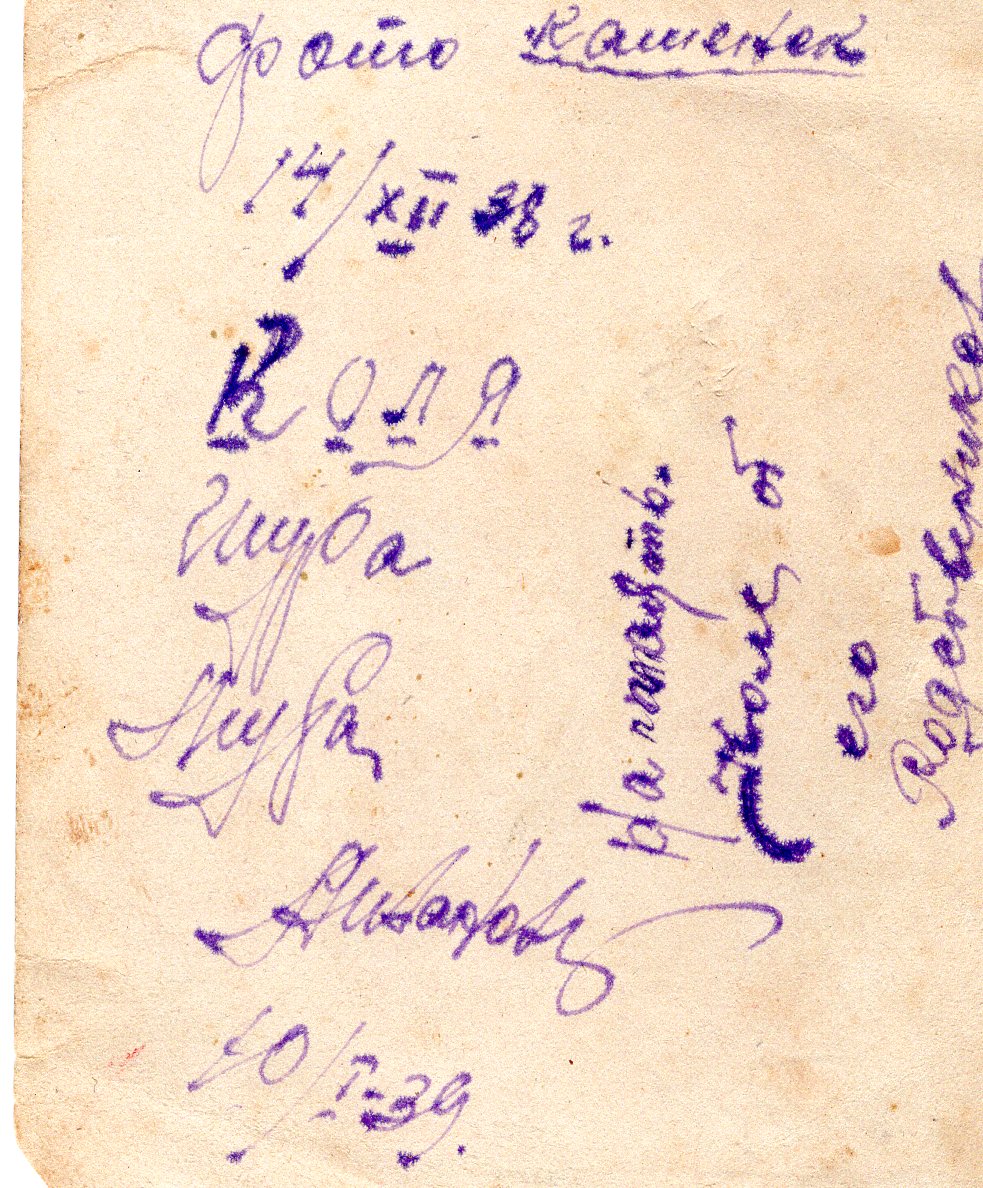 Фото Каменск
14/XII 38 г.
Коля
Шура
Шура
10/I-39.
На память.
Коле от
его
Родственников